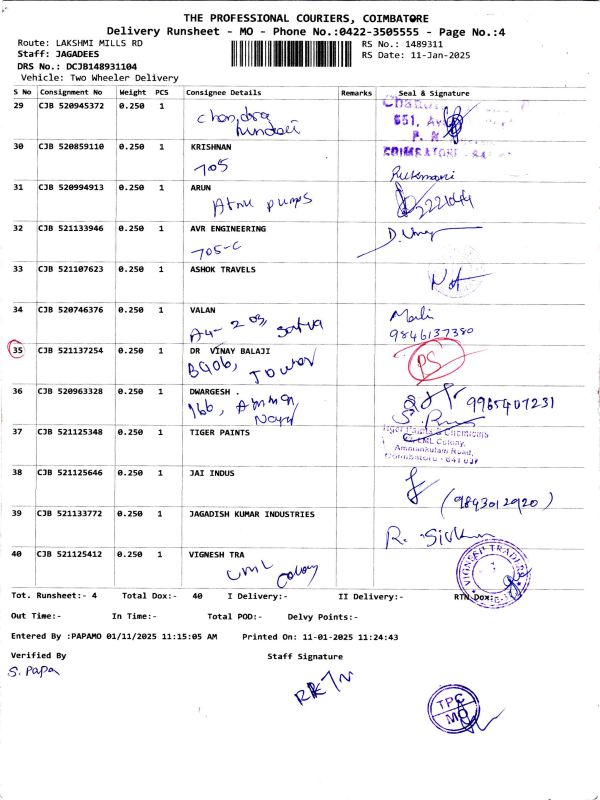 THE PROFESSIONAL COURIERS, COIMBATORE
Delivery Runsheet - MO - Phone No.:0422-3505555 - Page No.:4
Route: LAKSHMI MILLS RD RS No.: 1489311
Staff: JAGADEES RS Date: 11-Jan-2025
DRS No.: DCJB148931104
Vehicle: Two Wheeler Delivery
S No Consignment No Weight PCS Consignee Details Remarks Seal & Signature
29 CJB 520945372 0.250 1
Chandra
651,
30 CJB 520859110 0.250 1 KRISHNAN
COIMBATORE
705
Rukmani
31 CJB 520994913 0.250 1 ARUN
Atmu pumps
32 CJB 521133946 0.250 1 AVR ENGINEERING
705-C
33 CJB 521107623 0.250 1 ASHOK TRAVELS
34 CJB 520746376 0.250 1 VALAN
A4-203, Satva
9846137380
35 CJB 521137254 0.250 1 DR VINAY BALAJI
B906, Tower
PS
36 CJB 520963328 0.250 1 DWARGESH .
166, Amman
Nagar
9965407231
37 CJB 521125348 0.250 1 TIGER PAINTS
Tiger Paints & Chemicals
CML Colony,
Ammankulam Road,
Coimbatore - 641 037
38 CJB 521125646 0.250 1 JAI INDUS
(9893012920)
39 CJB 521133772 0.250 1 JAGADISH KUMAR INDUSTRIES
40 CJB 521125412 0.250 1 VIGNESH TRA
CML Colony
VIGNESH TRADERS
Tot. Runsheet:- 4 Total Dox:- 40 I Delivery:- II Delivery:- RTN Dox:-
Out Time:- In Time:- Total POD:- Delvy Points:-
Entered By :PAPAMO 01/11/2025 11:15:05 AM Printed On: 11-01-2025 11:24:43
Verified By Staff Signature
S. Papa
TPC
MO